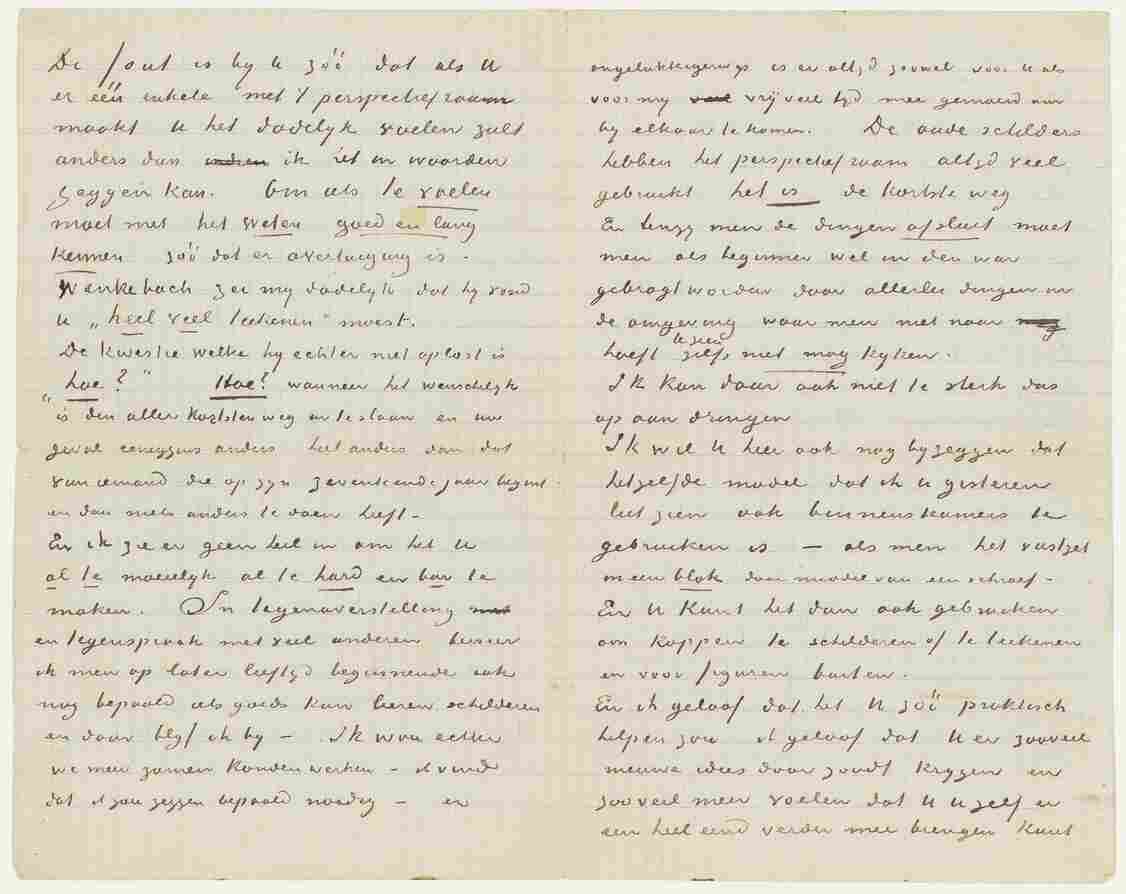 De fout is by U zóó dat als U
er één enkele met 't perspectiefraam
maakt U het dadelyk voelen zult
anders dan indien ik 't in woorden
zeggen kan. Om als te voelen
moet men het weten goed en lang
kennen zóó dat er overtuiging is.
Wenkebach zei my dadelyk dat hy vond
U „heel veel teekenen” moest.
De kwestie welke hy echter niet oplost is
„hoe?” Hoe? wanneer het wenschelyk
is den aller kortsten weg in te slaan en uw
geval eenigzins anders heel anders dan dat
van iemand die op zyn zeventiende jaar begint
en dan niets anders te doen heeft –
En ik zie er geen heil in om het U
al te moeielyk al te hard en bar te
maken. In tegenoverstelling met
en tegenspraak met veel anderen beweer
ik men op later leeftyd beginnende ook
nog bepaald iets goeds kan leeren schilderen
en daar blyf ik by – Ik wou echter
we meer zamen konden werken – ik vind
dat ik zou zeggen bepaald noodig – en
ongelukkigerwys is er altyd zoowel voor U als
voor my veel vry veel tyd mee gemoeid om
by elkaar te komen. De oude schilders
hebben het perspectiefraam altyd veel
gebruikt het is de kortste weg
En tenzy men de dingen afsluit moet
men als beginner wel in den war
gebragt worden door allerlei dingen in
de omgeving waar men niet naar
te zien
hoeft zelfs niet mag kyken.
Ik kan daar ook niet te sterk dus
op aan dringen
Ik wil U hier ook nog byzeggen dat
hetzelfde model dat ik U gisteren
liet zien ook binnenskamers te
gebruiken is – als men het vastzet
in een blok door middel van een schroef –
En U kunt het dan ook gebruiken
om koppen te schilderen of te teekenen
en voor figuren buiten.
En ik geloof dat het U zóó praktisch
helpen zou ik geloof dat U er zooveel
nieuwe idees door zoudt krygen en
zooveel meer voelen dat U U zelf er
een heel eind verder mee brengen kunt